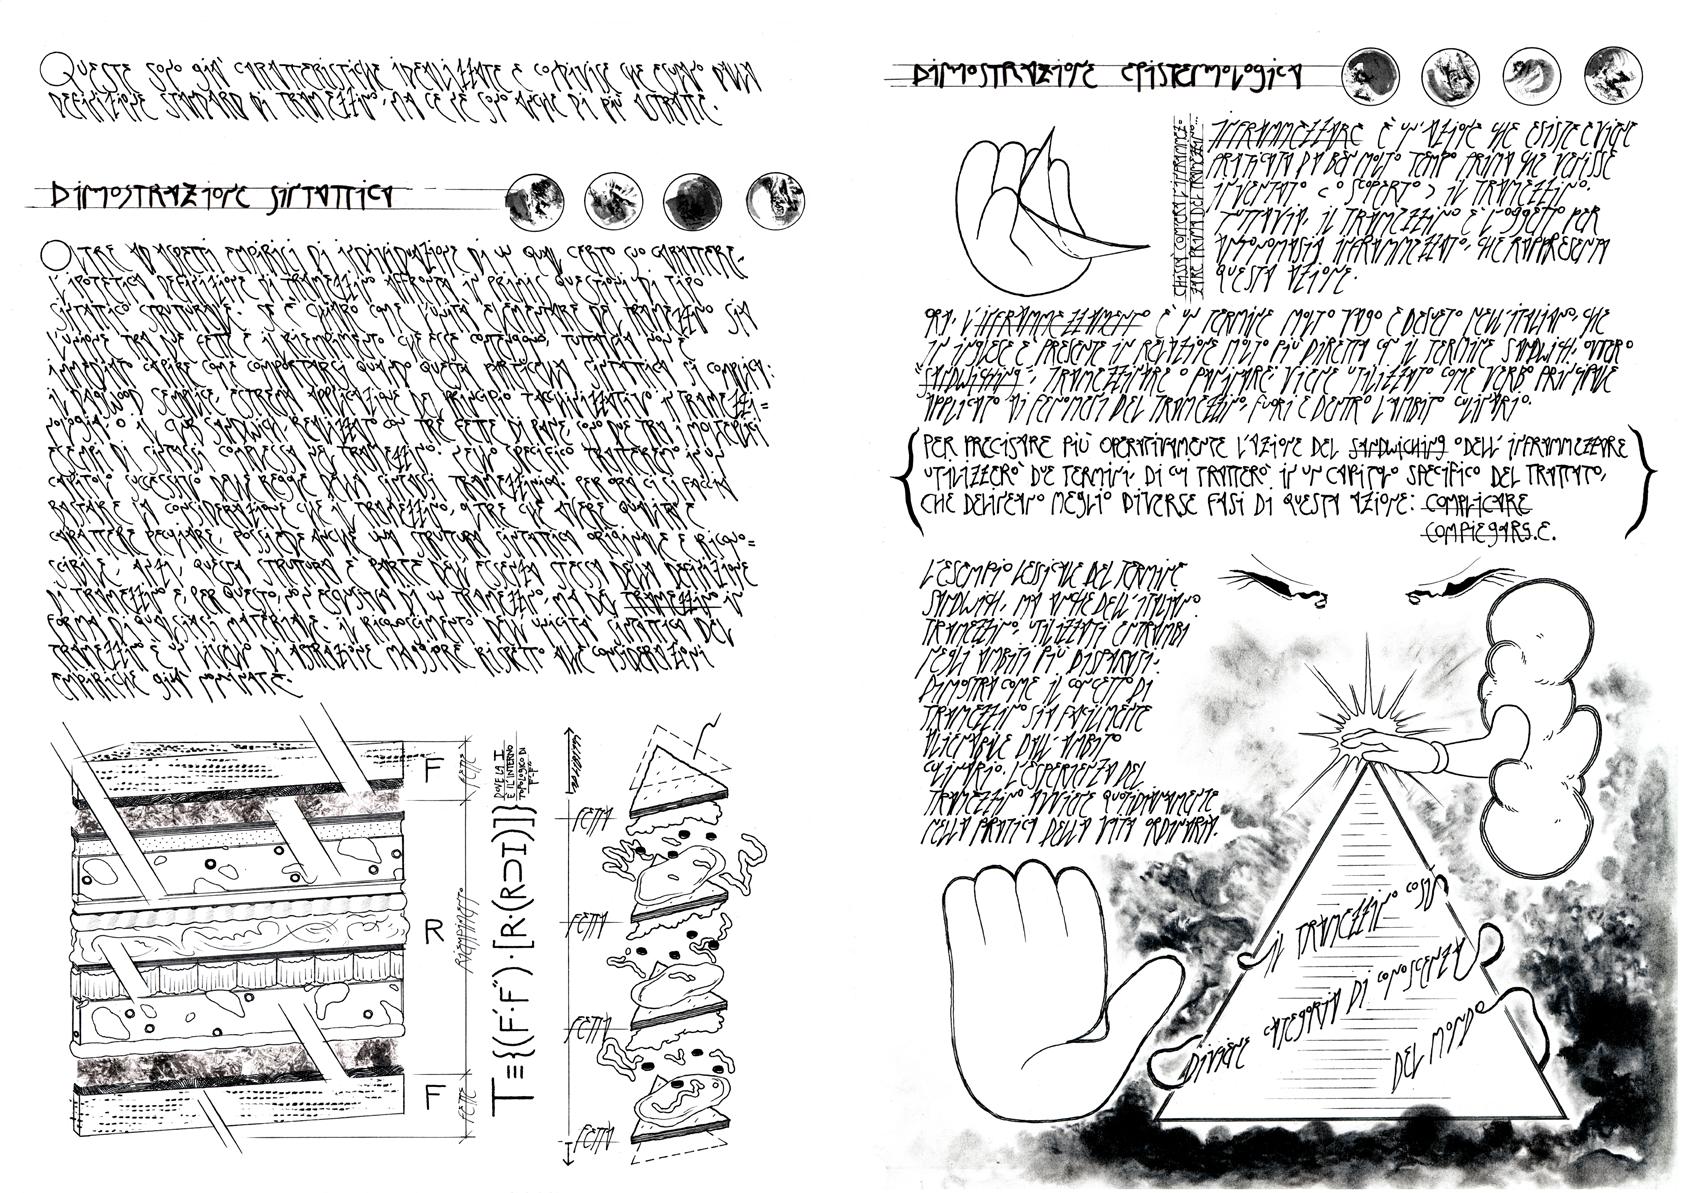 QUESTE SONO GIÀ CARATTERISTICHE IDEALIZZATE E CONDIVISE CHE FANNO DA UNA
DEFINIZIONE STANDARD DI TRAMEZZINO, MA CE NE SONO ANCHE DI PIÙ ASTRATTE.
DIMOSTRAZIONE SINTATTICA
OLTRE AD ASPETTI EMPIRICI DI INDIVIDUAZIONE DI UN QUAL CERTO SUO CARATTERE,
L'IPOTETICA DEFINIZIONE DI TRAMEZZINO AFFRONTA IN PRIMIS QUESTIONI DI TIPO
SINTATTICO STRUTTURALE. SE È CHIARO COME L'UNITÀ ELEMENTARE DEL TRAMEZZINO SIA
L'UNIONE TRA DUE FETTE E IL RIEMPIMENTO CHE ESSE CONTENGONO, TUTTAVIA NON È
IMMEDIATO CAPIRE COME COMPORTARCI QUANDO QUESTA PARTICELLA SINTATTICA SI COMPLICA:
IL DAGWOOD SEMPLICE, ESTREMA APPLICAZIONE DEL PRINCIPIO IN TRAMEZZI=
NOLOGIA, O IL CLUB SANDWICH, REALIZZATO CON TRE FETTE DI PANE, SONO DUE TRA I MOLTEPLICI
ESEMPI DI SINTASSI COMPLESSA DEL TRAMEZZINO. NELLO SPECIFICO TRATTEREMO IN UN
CAPITOLO SUCCESSIVO DELLE REGOLE DELLA SINTASSI TRAMEZZINICA. PER ORA CI SI FACCIA
BASTARE LA CONSIDERAZIONE CHE IL TRAMEZZINO, OLTRE CHE ALTRE QUALITÀ E
CARATTERE PECULIARE, POSSIEDE ANCHE UNA STRUTTURA SINTATTICA ORIGINALE E RICONO=
SCIBILE, ANZI, QUESTA STRUTTURA È PARTE DELL'ESSENZA STESSA DELLA DEFINIZIONE
DI TRAMEZZINO E, PER QUESTO, NON ESCLUSIVA DI UN TRAMEZZINO, MA DEL TRAMEZZINO IN
FORMA DI QUALSIASI MATERIALE. IL RICONOSCIMENTO DELL'UNICITÀ SINTATTICA DEL
TRAMEZZINO È UN LIVELLO DI ASTRAZIONE MAGGIORE RISPETTO ALLE CONSIDERAZIONI
EMPIRICHE GIÀ NOMINATE.
F
FETTE
R
RIEMPIMENTO
F
FETTE
T≡{(F'·F'')·[R·(R⊃I)]}
DOVE LA I
È L'INTERNO
TOPOLOGICO DI
FETTA
FETTA
FETTA
FETTA
DIMOSTRAZIONE EPISTEMOLOGICA
CHISSÀ COM'ERA L'INFRAMMEZ-
ZARE PRIMA DEL TRAMEZZINO...
INFRAMMEZZARE È UN'AZIONE CHE ESISTE E VIENE
PRATICATA DA BEN MOLTO TEMPO PRIMA CHE VENISSE
INVENTATO <O SCOPERTO> IL TRAMEZZINO.
TUTTAVIA, IL TRAMEZZINO È L'OGGETTO PER
ANTONOMASIA INFRAMMEZZATO, CHE RAPPRESENTA
QUESTA AZIONE.
ORA, L'INFRAMMEZZAMENTO È UN TERMINE MOLTO VAGO E DESUETO NELL'ITALIANO, CHE
IN INGLESE È PRESENTE IN RELAZIONE MOLTO PIÙ DIRETTA CON IL TERMINE SANDWICH, OVVERO
"SANDWICHING", TRAMEZZINARE O PANINARE. VIENE UTILIZZATO COME VERBO PRINCIPALE
APPLICATO AI FENOMENI DEL TRAMEZZINO, FUORI E DENTRO L'AMBITO CULINARIO.
{PER PRECISARE PIÙ OPERATIVAMENTE L'AZIONE DEL SANDWICHING O DELL'INFRAMMEZZARE
UTILIZZERÒ DUE TERMINI, DI CUI TRATTERÒ IN UN CAPITOLO SPECIFICO DEL TRATTATO,
CHE DELINEANO MEGLIO DIVERSE FASI DI QUESTA AZIONE: COMPLICARE
COMPIEGARS.E.}
L'ESEMPIO LESSICALE DEL TERMINE
SANDWICH, MA ANCHE DELL'ITALIANO
TRAMEZZINO, UTILIZZATI ENTRAMBI
NEGLI AMBITI PIÙ DISPARATI,
DIMOSTRA COME IL CONCETTO DI
TRAMEZZINO SIA FACILMENTE
ALIENABILE DALL'AMBITO
CULINARIO. L'ESPERIENZA DEL
TRAMEZZINO AVVIENE QUOTIDIANAMENTE
NELLA PRATICA DELLA VITA ORDINARIA.
IL TRAMEZZINO COSÌ
DIVIENE CATEGORIA DI CONOSCENZA
DEL MONDO